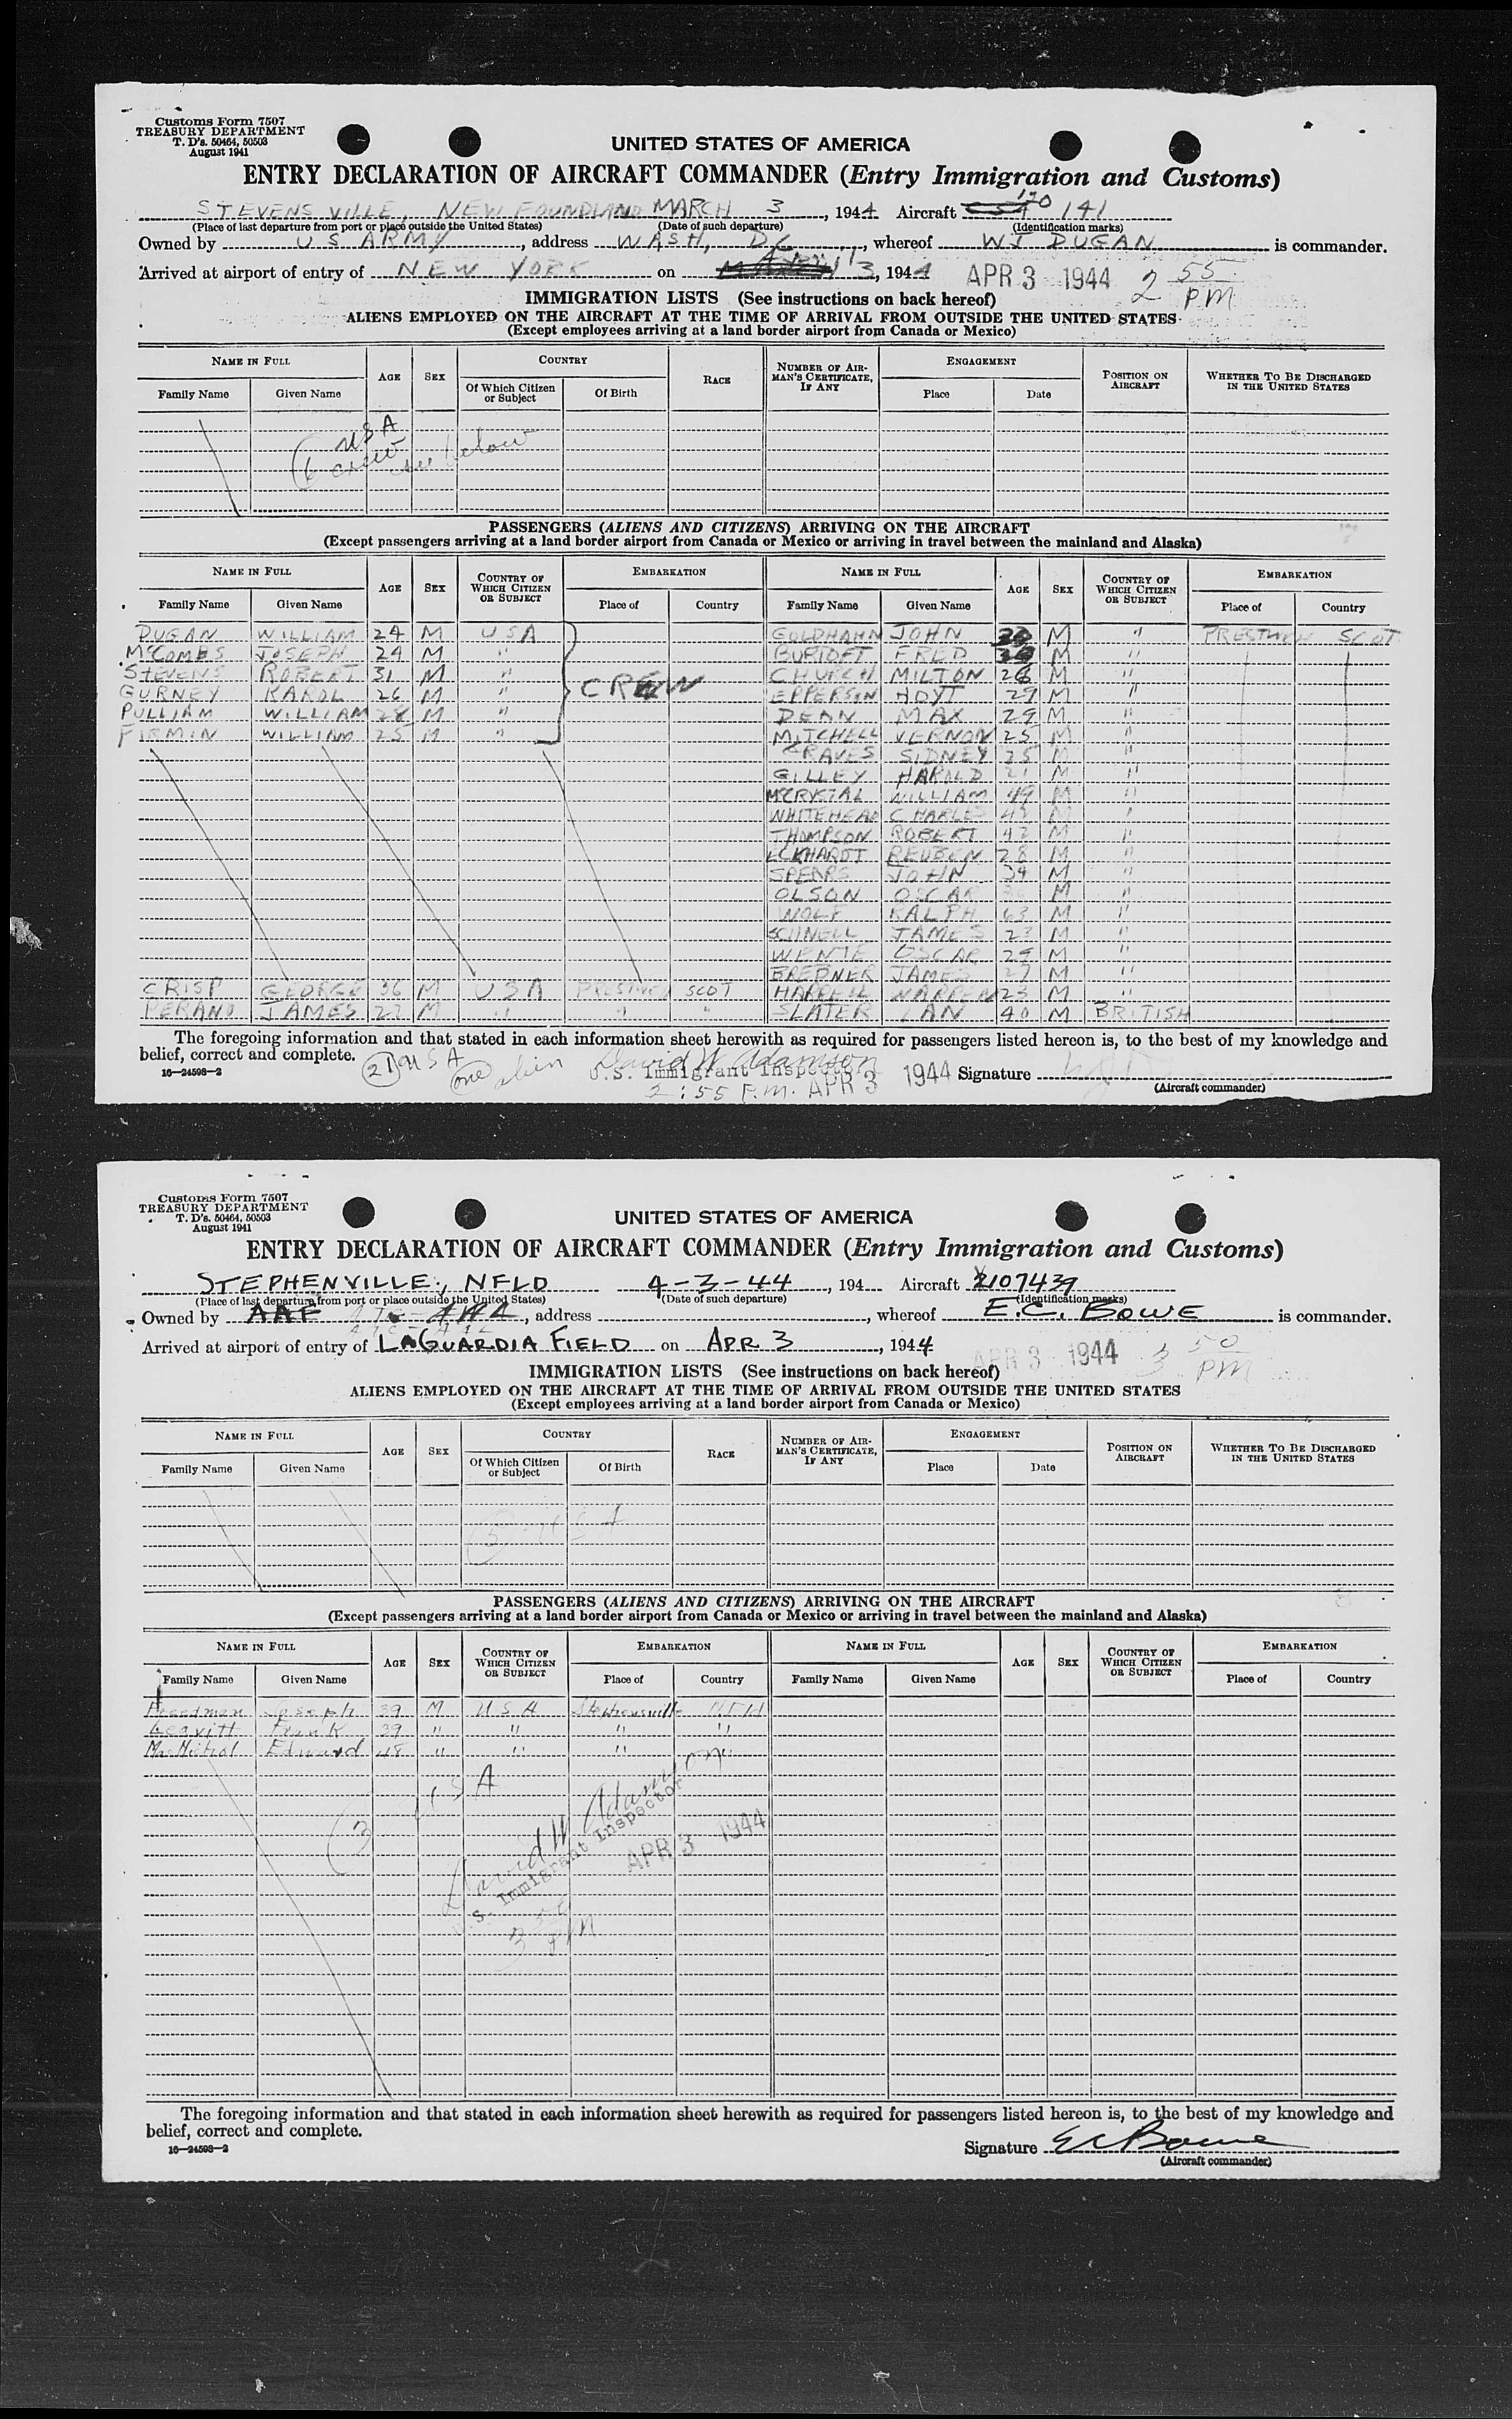 Customs Form 7507
TREASURY DEPARTMENT
T. D's. 50464, 50503
August 1941
UNITED STATES OF AMERICA
ENTRY DECLARATION OF AIRCRAFT COMMANDER (Entry Immigration and Customs)
STEVENSVILLE, NEWFOUNDLAND MARCH 3, 1944 Aircraft 170 141
(Place of last departure from port or place outside the United States) (Date of such departure) (Identification marks)
Owned by U S ARMY, address WASH, DC, whereof WJ DUGAN is commander.
Arrived at airport of entry of NEW YORK on April 3, 1944 APR 3 1944 2 55 PM
IMMIGRATION LISTS (See instructions on back hereof)
ALIENS EMPLOYED ON THE AIRCRAFT AT THE TIME OF ARRIVAL FROM OUTSIDE THE UNITED STATES
(Except employees arriving at a land border airport from Canada or Mexico)
NAME IN FULL AGE SEX COUNTRY RACE NUMBER OF AIRMAN'S CERTIFICATE, IF ANY ENGAGEMENT POSITION ON AIRCRAFT WHETHER TO BE DISCHARGED IN THE UNITED STATES
Family Name Given Name Of Which Citizen or Subject Of Birth Place Date
6 USA crew see below
PASSENGERS (ALIENS AND CITIZENS) ARRIVING ON THE AIRCRAFT
(Except passengers arriving at a land border airport from Canada or Mexico or arriving in travel between the mainland and Alaska)
NAME IN FULL AGE SEX COUNTRY OF WHICH CITIZEN OR SUBJECT EMBARKATION NAME IN FULL AGE SEX COUNTRY OF WHICH CITIZEN OR SUBJECT EMBARKATION
Family Name Given Name Place of Country Family Name Given Name Place of Country
DUGAN WILLIAM 24 M USA GOLDHAHN JOHN M " PRESTWICH SCOT
McCOMBS JOSEPH 24 M " BURTOFT FRED M "
STEVENS ROBERT 31 M " CHURCH MILTON 26 M "
GURNEY KAROL 26 M " CREW EPPERSON HOYT 29 M "
PULLIAM WILLIAM 28 M " DEAN MAX 29 M "
FIRMIN WILLIAM 25 M " MITCHELL VERNON 25 M "
GRAVES SIDNEY 25 M "
GILLEY HAROLD 21 M "
McCRYSTAL WILLIAM 49 M "
WHITEHEAD CHARLES 42 M "
THOMPSON ROBERT 42 M "
ECKHARDT REUBEN 28 M "
SPEARS JOHN 34 M "
OLSON OSCAR M "
WOLF RALPH 63 M "
SCHNELL JAMES 23 M "
WENTE OSCAR 29 M "
BREDNER JAMES 27 M "
CRISP GEORGE 36 M USA PRESTWICH SCOT HARRELL WARREN 23 M "
PERANO JAMES 27 M " " " SLATER IAN 40 M BRITISH
The foregoing information and that stated in each information sheet herewith as required for passengers listed hereon is, to the best of my knowledge and
belief, correct and complete.
16—24598-2 21 USA one alien David W Adamson
U.S. Immigrant Inspector APR 3 1944 Signature
2:55 P.M. (Aircraft commander)
Customs Form 7507
TREASURY DEPARTMENT
T. D's. 50464, 50503
August 1941
UNITED STATES OF AMERICA
ENTRY DECLARATION OF AIRCRAFT COMMANDER (Entry Immigration and Customs)
STEPHENVILLE, NFLD 4-3-44, 194 Aircraft 2107439
(Place of last departure from port or place outside the United States) (Date of such departure) (Identification marks)
Owned by AAF, address , whereof E.C. BOWE is commander.
Arrived at airport of entry of LAGUARDIA FIELD on APR 3, 1944 APR 3 1944 3 50 PM
IMMIGRATION LISTS (See instructions on back hereof)
ALIENS EMPLOYED ON THE AIRCRAFT AT THE TIME OF ARRIVAL FROM OUTSIDE THE UNITED STATES
(Except employees arriving at a land border airport from Canada or Mexico)
NAME IN FULL AGE SEX COUNTRY RACE NUMBER OF AIRMAN'S CERTIFICATE, IF ANY ENGAGEMENT POSITION ON AIRCRAFT WHETHER TO BE DISCHARGED IN THE UNITED STATES
Family Name Given Name Of Which Citizen or Subject Of Birth Place Date
USA
PASSENGERS (ALIENS AND CITIZENS) ARRIVING ON THE AIRCRAFT
(Except passengers arriving at a land border airport from Canada or Mexico or arriving in travel between the mainland and Alaska)
NAME IN FULL AGE SEX COUNTRY OF WHICH CITIZEN OR SUBJECT EMBARKATION NAME IN FULL AGE SEX COUNTRY OF WHICH CITIZEN OR SUBJECT EMBARKATION
Family Name Given Name Place of Country Family Name Given Name Place of Country
Freedman Joseph 39 M USA Stephensville NFld
Leavitt Frank 39 " " " "
MacNichol Edward 48 " " " "
3 USA
David W Adamson
U.S. Immigrant Inspector
APR 3 1944
3 50 PM
The foregoing information and that stated in each information sheet herewith as required for passengers listed hereon is, to the best of my knowledge and
belief, correct and complete.
16—24598-2
Signature EC Bowe
(Aircraft commander)